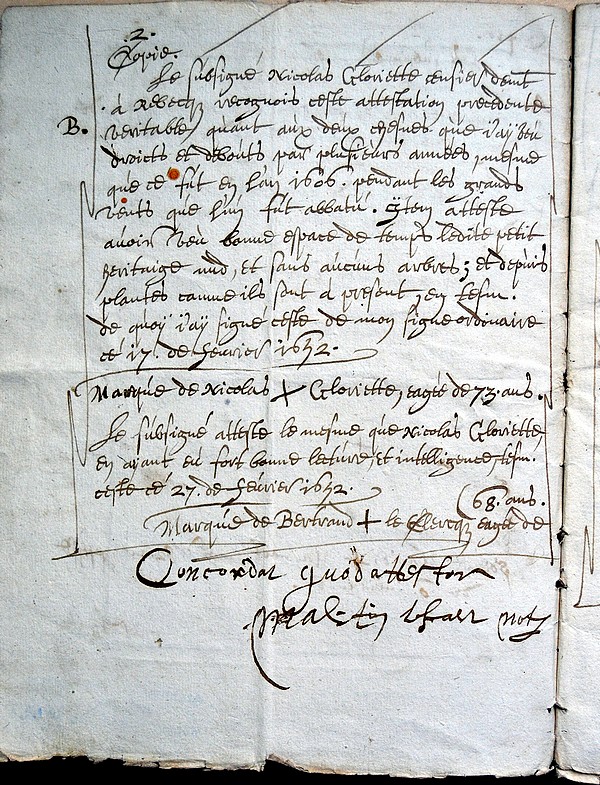 .2.
Copie.
Le subsigné Nicolas Gloriette censier demt
à Rebecq recognois ceste attestation precedente
B. veritable, quant aux deux chesnes que j'ay veu
droicts et debouts par plusieurs années, mesme
que ce fut en l'an 1606. pendant les grands
vents que l'un fut abbatu. Item atteste
avoir veu bonne espace de temps ledit petit
heritaige nud, et sans aucuns arbres; et depuis
plantés comme ils sont à present, en tesm.
de quoy j'ay signé ceste de mon signe ordinaire
ce 17. de febvrier 1652.
Marque de Nicolas X Gloriette, eagée de 73. ans.
Le subsigné atteste le mesme que Nicolas Gloriette
en ayant eu fort bonne lecture, et intelligence, tesm.
ceste ce 27. de febvrier 1652.
(68. ans.
Marque de Bertrand + le Clercq eagée de
Concordat quod attestor
not